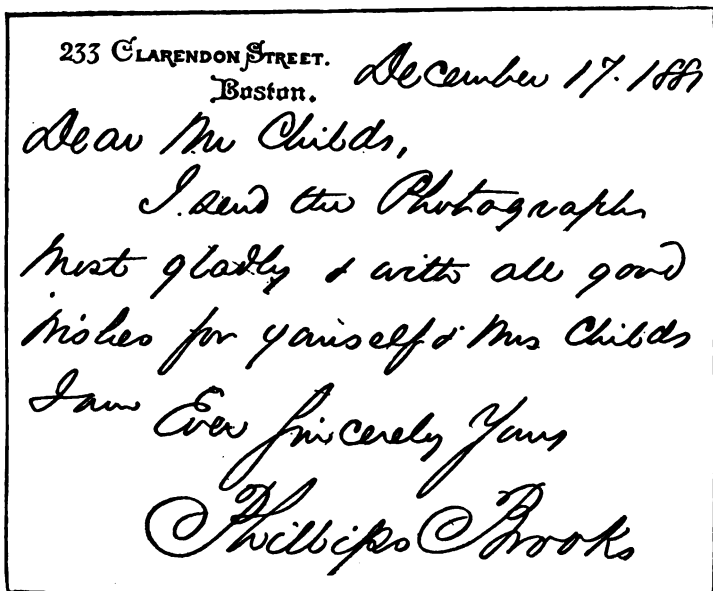 233 CLARENDON STREET.
Boston.
December 17. 188
Dear Mr Childs,
I send the Photograph
most gladly & with all good
wishes for yourself & Mrs Childs
I am
Ever Sincerely Yours
Phillips Brooks